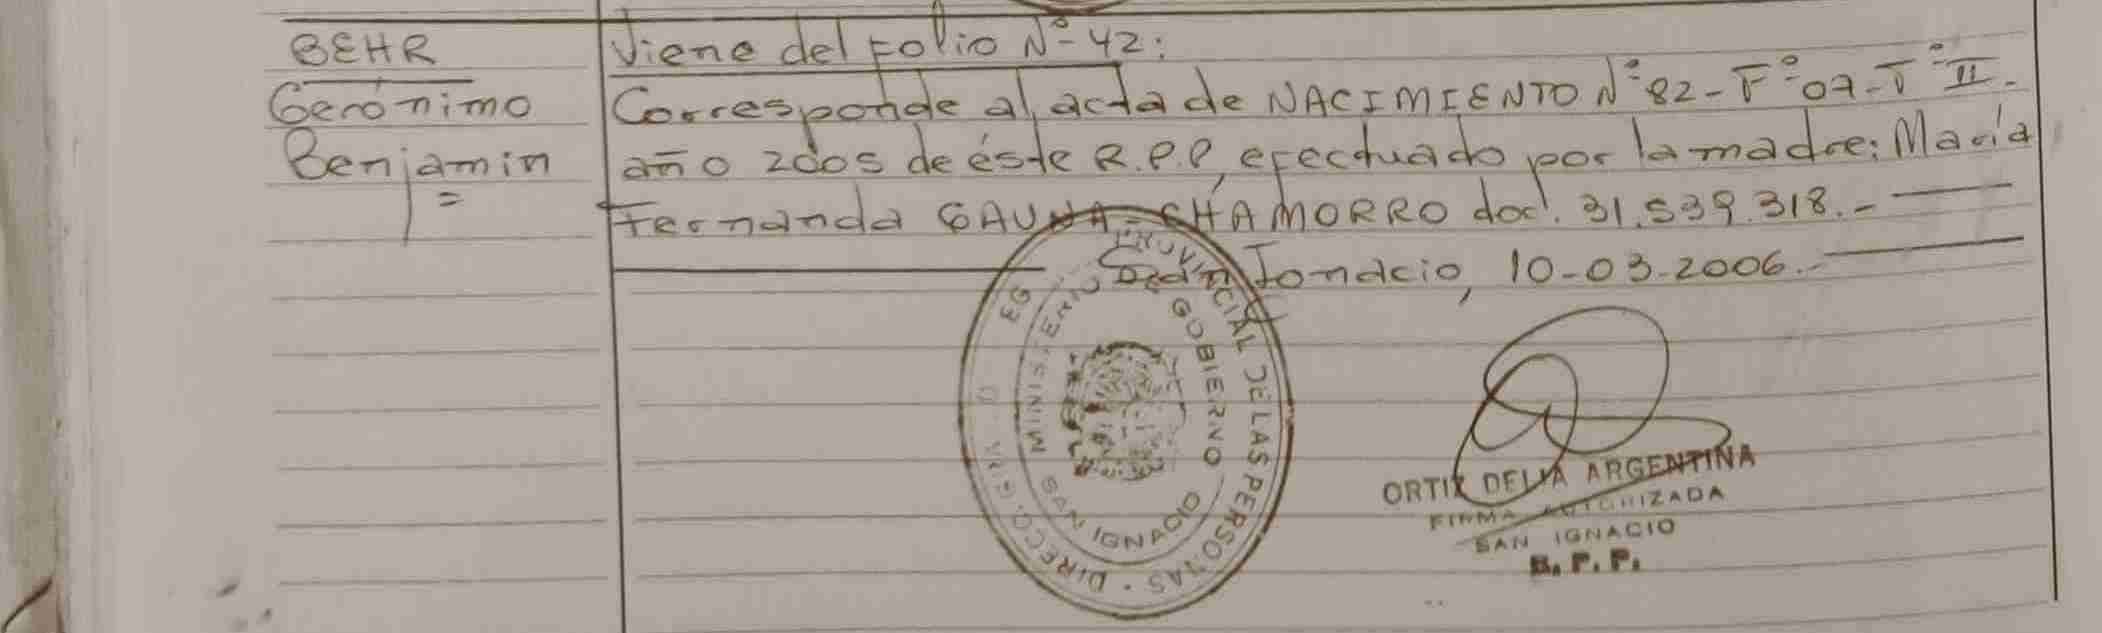 BEHR
Gerónimo
Benjamin
Viene del Folio Nº 42:
Corresponde al acta de NACIMIENTO Nº 82 - Fº 07 - Tº II -
año 2005 de éste R.P.P, efectuado por la madre: María
Fernanda GAUNA - CHAMORRO doc. 31.539.318.-
San Ignacio, 10-03-2006.-
PROVINCIAL DE LAS PERSONAS
MINISTERIO DE GOBIERNO
SAN IGNACIO
ORTIZ DELIA ARGENTINA
FIRMA AUTORIZADA
SAN IGNACIO
R. P. P.